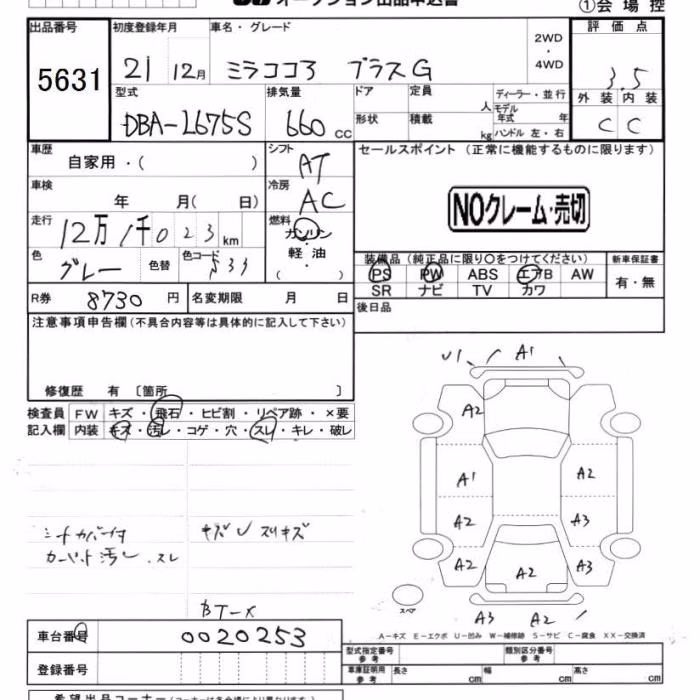 オークション出品申込書
①会場控
出品番号 初度登録年月 車名・グレード 評価点
5631 21 12月 ミラココア プラスG 2WD・4WD 3.5
型式 排気量 ドア 定員 人 ディーラー・並行 外装 内装
DBA-L675S 660 CC 形状 積載 kg モデル年式 年 ハンドル 左・右 C C
車歴 シフト セールスポイント (正常に機能するものに限ります)
自家用・( ) AT
車検 冷房
年 月( 日) AC
NOクレーム・売切
走行 12万1千023km 燃料
ガソリン
軽油
( )
色 グレー 色替 色コード S33
装備品 (純正品に限り○をつけてください) 新車保証書
PS PW ABS エアB AW 有・無
SR ナビ TV カワ
R券 8730 円 名変期限 月 日
後日品
注意事項申告欄 (不具合内容等は具体的に記入して下さい)
修復歴 有 〔箇所 〕
検査員 FW キズ・飛石・ヒビ割・リペア跡・×要
記入欄 内装 キズ・汚レ・コゲ・穴・スレ・キレ・破レ
U1 A1
A2
A1 A2
A2 A3
A2 A2 A3
A3 A2
スペア
シートカバー付 キズU スリキズ
カーペット汚レ.スレ
BTーX
A-キズ E-エクボ U-凹み W-補修跡 S-サビ C-腐食 XX-交換済
車台番号 0020253
登録番号
型式指定番号 参考 類別区分番号 参考
車庫証明用 参考 長さ cm 幅 cm 高さ cm
希望出品コーナー